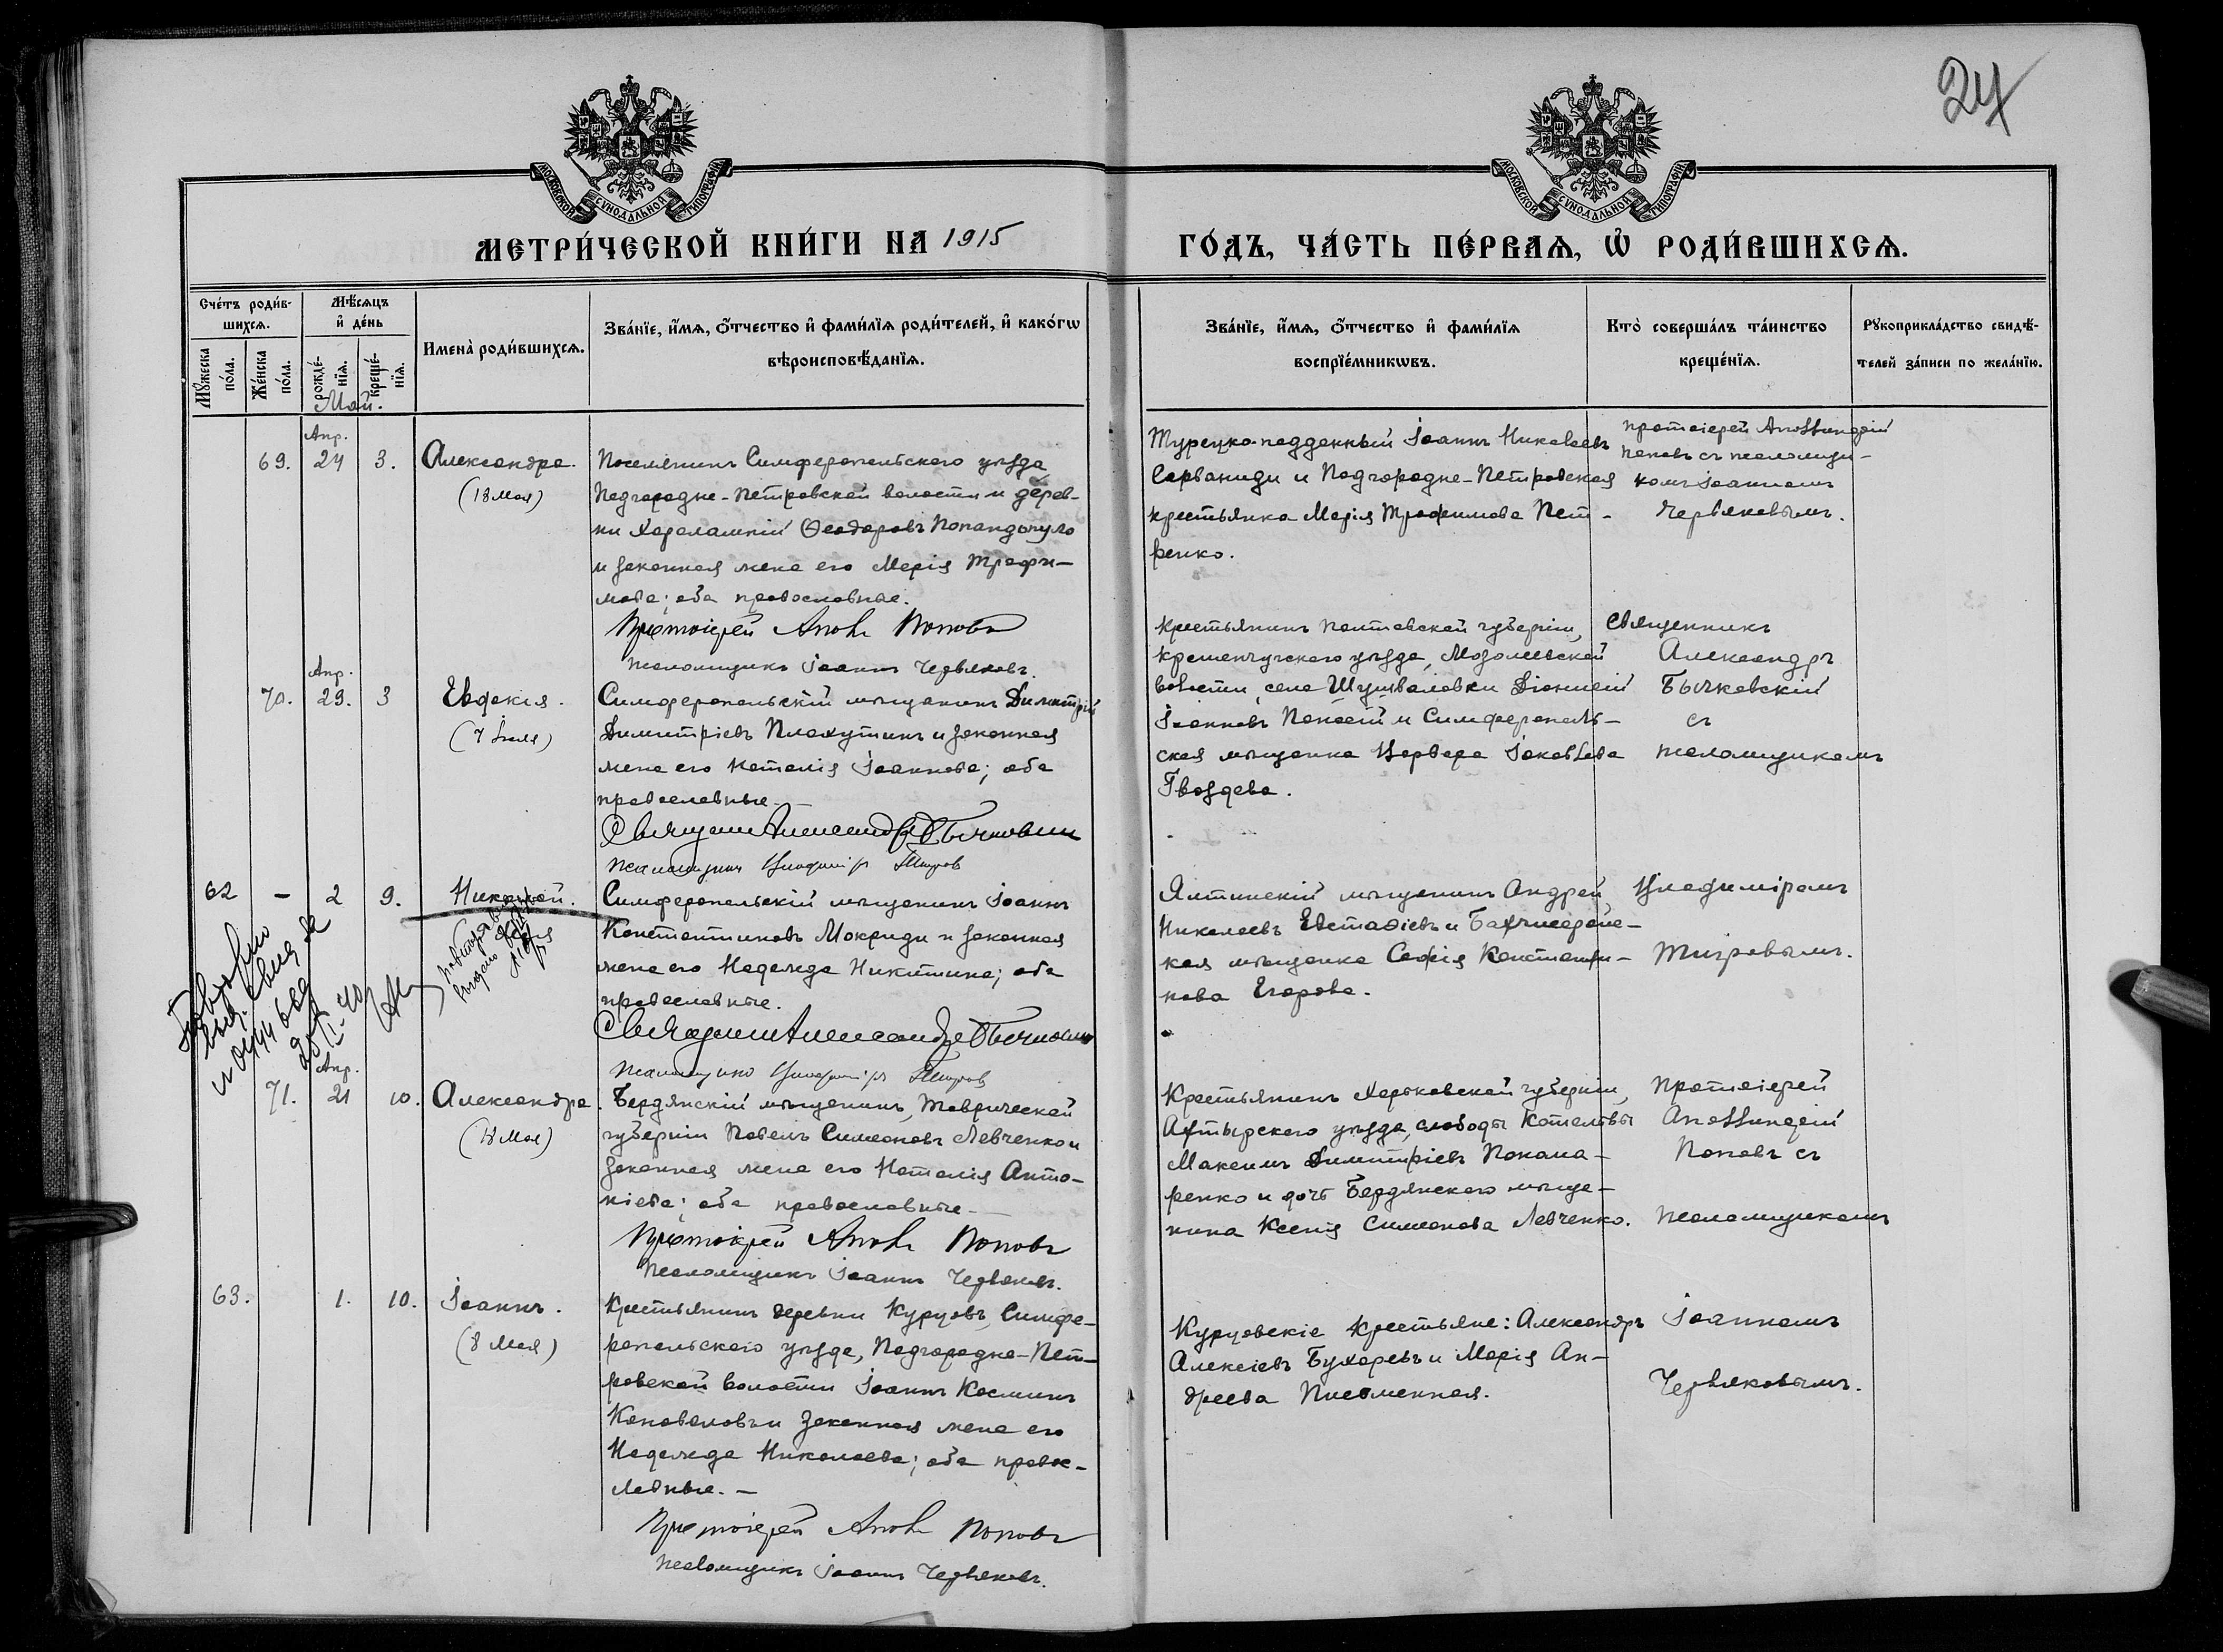 24
МОСКОВСКОЙ СѴНОДАЛЬНОЙ ТИПОГРАФІИ
МОСКОВСКОЙ СѴНОДАЛЬНОЙ ТИПОГРАФІИ
МЕТРИ́ЧЕСКОЙ КНИ́ГИ НА 1915
ГО́ДЪ, ЧА́СТЬ ПЕ́РВАѦ, Ѡ҆ РОДИ́ВШИХСѦ.
Сче́тъ роди́в-
шихсѧ.
Мꙋ́жеска по́ла.
Же́нска по́ла.
Мѣ́сѧцъ
и҆ де́нь
рожде́-
нїѧ.
креще́-
нїѧ.
Имена̀ роди́вшихсѧ.
Зва́нїе, и҆́мѧ, ѻ҆́тчество и҆ фами́лїѧ роди́телей, и҆ како́гѡ
вѣроисповѣ́данїѧ.
Зва́нїе, и҆́мѧ, ѻ҆́тчество и҆ фами́лїѧ
воспрїе́мникѡвъ.
Кто̀ соверша́лъ та́инство
креще́нїѧ.
Рꙋкоприкла́дство свидѣ́-
телей за́писи по жела́нїю.
Май.
Апр.
69. 24 3. Александра.
(18 Мая)
Поселянинъ Симферопольскаго уѣзда
Подгородне-Петровской волости и дерев-
ни Харалампій Ѳеодоровъ Попандопуло
и законная жена его Марія Трофи-
мова; оба православные.
Протоіерей Апол. Поповъ
Псаломщикъ Іоаннъ Червяковъ.
Турецко-подданный Іоаннъ Николаевъ
Сарваниди и Подгородне-Петровская
крестьянка Марія Трофимова Пет-
ренко.
Протоіерей Аполлинарій
Поповъ съ псаломщи-
комъ Іоанномъ
Червяковымъ.
Апр.
70. 29. 3 Евдокія.
(7 Іюля)
Симферопольскій мѣщанинъ Димитрій
Димитріевъ Плахутинъ и законная
жена его Наталія Іоаннова; оба
православные.
Священ. Александръ Бычковскій
Псаломщикъ Владиміръ Тигровъ
Крестьянинъ Полтавской губерніи,
Кременчугскаго уѣзда, Мозолеевской
волости, села Шушваловки Діонисій
Іоанновъ и Симферополь-
ская мѣщанка Варвара Іаковлева
Гвоздева.
Священникъ
Александръ
Бычковскій
съ
псаломщикомъ
62 – 2 9. Николай.
9 Мая
Повторно
выд. свид. за
20/I-40
Симферопольскій мѣщанинъ Іоаннъ
Константиновъ Мокриди и законная
жена его Надежда Никитина; оба
православные.
Священникъ Александръ Бычковскій
Псаломщикъ Владиміръ Тигровъ
Ялтинскій мѣщанинъ Андрей
Николаевъ Евстафіевъ и Бахчисарайс-
кая мѣщанка Софія Константи-
нова Егорова.
Владиміромъ
Тигровымъ.
Апр.
71. 21 10. Александра.
(18 Мая)
Бердянскій мѣщанинъ, Таврической
губерніи Павелъ Симеоновъ Левченко и
законная жена его Наталія Анто-
ніева; оба православные.
Протоіерей Апол. Поповъ
Псаломщикъ Іоаннъ Червяковъ.
Крестьянинъ Харьковской губерніи,
Ахтырскаго уѣзда, слободы Котельвы
Максимъ Димитріевъ Понома-
ренко и дочь Бердянскаго мѣща-
нина Ксенія Симеонова Левченко.
Протоіерей
Аполлинарій
Поповъ съ
псаломщикомъ
63. 1. 10. Іоаннъ.
(8 Мая)
Крестьянинъ деревни Курцовъ, Симфе-
ропольскаго уѣзда, Подгородне-Пет-
ровской волости Іоаннъ Косминъ
Коноваловъ и законная жена его
Надежда Николаева; оба правос-
лавные. –
Протоіерей Апол. Поповъ
Псаломщикъ Іоаннъ Червяковъ.
Курцовскіе крестьяне: Александръ
Алексіевъ Бухаревъ и Марія Ан-
дреева Писменная.
Іоанномъ
Червяковымъ.